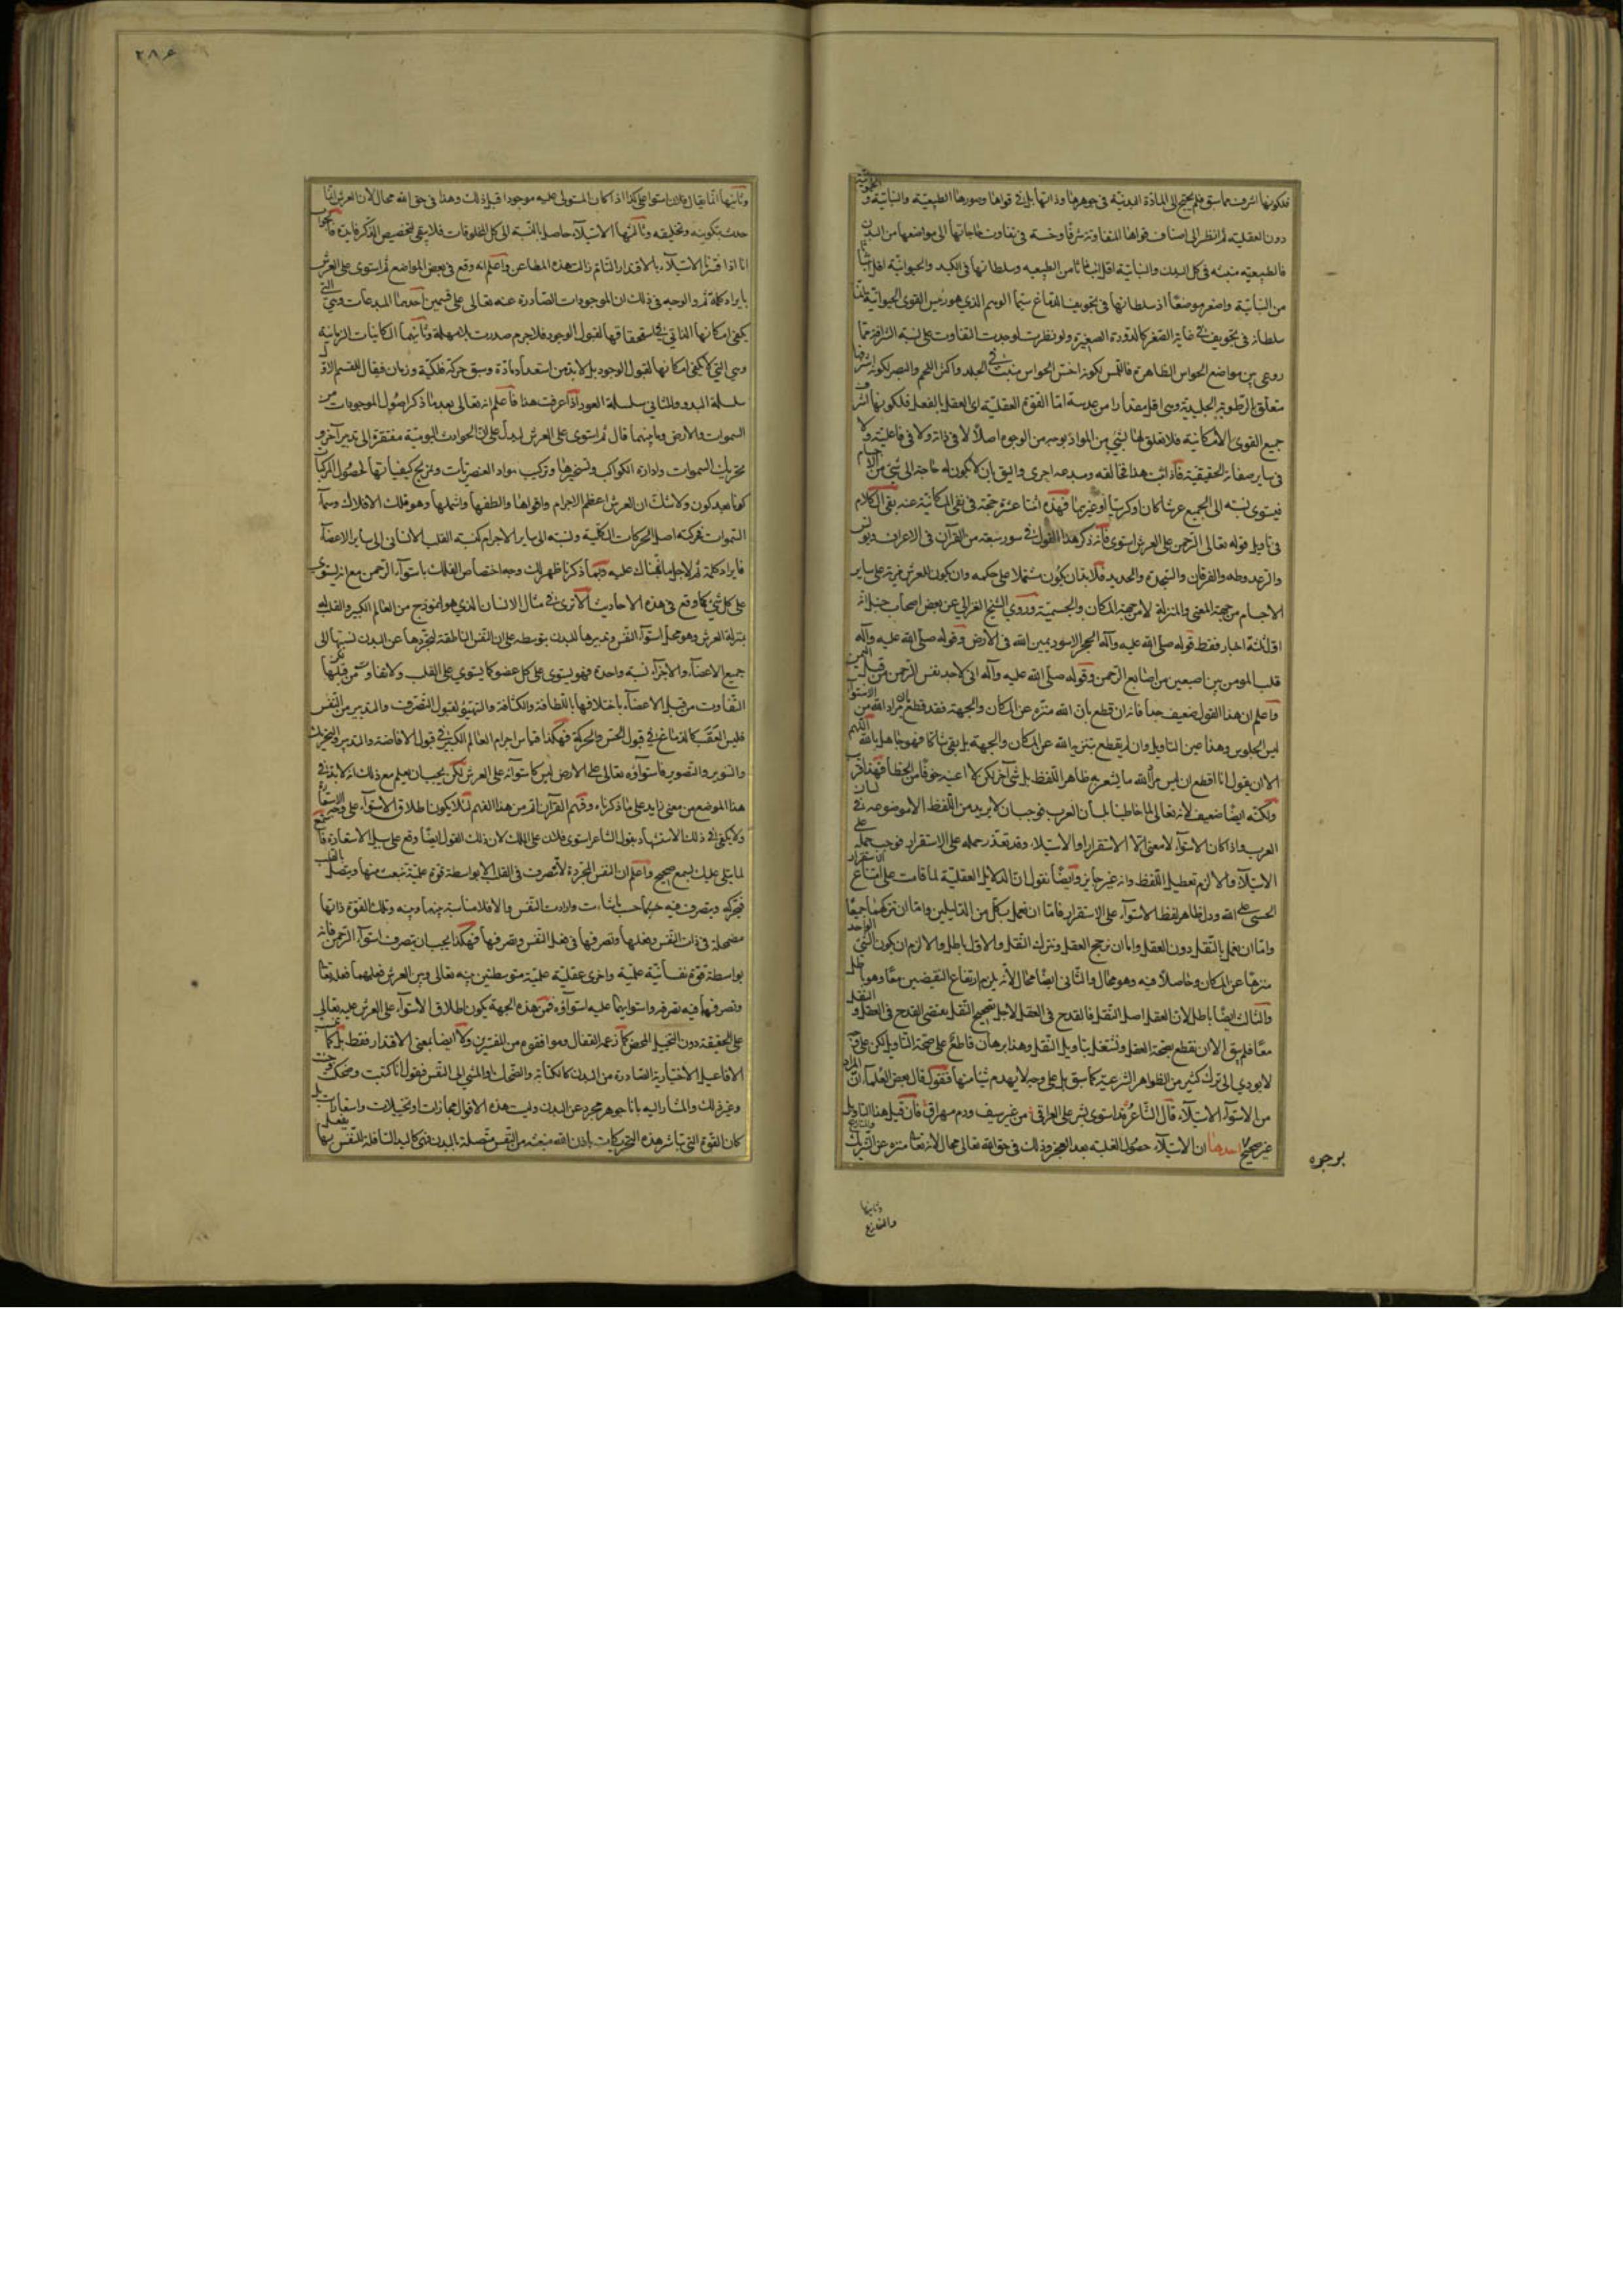 فلكونها اشرف مما سبق فلم يحتج الى المادة البدنية فى جوهرها وذاتها بل فى قواها وصورها الطبيعية والنباتية و الحيوانية
دون العقلية ثم انظر الى اصناف قواها المتفاوتة شرفا وخسة فى تفاوت حاجاتها الى مواضعها من البدن
فالطبيعية منبثه فى كل البدن والنباتية اقل انبثاثا من الطبيعيه وسلطانها فى الكبد والحيوانية اقل انبثاثا
من النباتية واصغر موضعا اذ سلطانها فى تجويف الدماغ سيما الوهم الذي هو رئيس القوى الحيوانية فان
سلطانه فى تجويف فى غاية الصغر كالدودة الصغيرة ولو نظرت لوجدت التفاوت على نسبة الشرافة مما
روعى بين مواضع الحواس الظاهرة فاللمس لكونه اخس الحواس منبث فى الجلد واكثر اللحم والبصر لكونه اشرفها
متعلق بالرطوبة الجليدية وهى اقل مقدارا من عدسة اما القوة العقلية اى العقل بالفعل فلكونها اشرف
جميع القوى الامكانية فلا تعلق لها بشئ من المواد بوجه من الوجوه اصلا لا فى ذاته ولا فى فاعليته ولا
فى ساير صفاته الحقيقية فاذا ثبت هذا فخالقه ومبدعه احرى واليق بان لا يكون له حاجة الى شئ من الاجسام
فيستوى نسبته الى الجميع عرشا كان او كرسيا او غيرهما فهذه اثنتا عشرة حجة فى نفى المكانية عنه بقى الكلام
فى تاويل قوله تعالى الرحمن على العرش استوى فانه ذكر هذا القول فى سور سبعة من القرآن فى الاعراف ويونس
والرعد وطه والفرقان والسجدة والحديد فلا بد ان يكون مشتملا على حكمه وان يكون للعرش مزية على ساير
الاجسام من جهة المعنى والمنزلة لا من جهة المكان والجسمية وروى الشيخ الغزالى عن بعض اصحاب حنبل انه
اوّل ثلثة اخبار فقط قوله صلى الله عليه وآله الحجر الاسود يمين الله فى الارض وقوله صلى الله عليه وآله
قلب المؤمن بين اصبعين من اصابع الرحمن وقوله صلى الله عليه وآله انى لاجد نفس الرحمن من قبل اليمن
واعلم ان هذا القول ضعيف جدا فانه ان قطع بان الله منزه عن المكان والجهة فقد قطع بان مراد الله من الاستواء
ليس الجلوس وهذا عين التاويل وان لم يقطع بتنزيه الله عن المكان والجهة بل بقى شاكا فهو جاهل بالله اللهم
الا ان يقول انا اقطع ان ليس مراد الله ما يشعر به ظاهر اللفظ بل شئ آخر لكن لا اعينه خوفا من الخطأ فهذا اقرب
ولكنه ايضا ضعيف لانه تعالى لما خاطبنا بلسان العرب فوجب ان لا يريد من اللفظ الا موضوعه فى لسان
العرب واذا كان الاستواء لا معنى له الا الاستقرار او الاستيلاء وقد تعذر حمله على الاستقرار فوجب حمله على
الاستيلاء والا لزم تعطيل اللفظ وانه غير جايز وايضا نقول ان الدلايل العقلية لما قامت على امتناع الاستقرار
الحسى على الله ودل ظاهر لفظ الاستواء على الاستقرار فاما ان نعمل بكل من الدليلين واما ان نتركهما جميعا
واما ان نعمل بالنقل دون العقل واما ان نرجح العقل ونترك النقل والاول باطل والا لزم ان يكون الشئ الواحد
منزها عن المكان وحاصلا فيه وهو محال والثانى ايضا محال لانه يلزم ارتفاع النقيضين معا وهو باطل
والثالث ايضا باطل لان العقل اصل النقل فالقدح فى العقل لاجل تصحيح النقل يقتضى القدح فى العقل و النقل
معا فلم يبق الا ان نقطع بصحة العقل ونشتغل بتاويل النقل وهذا برهان قاطع على صحة التاويل لكن على وجه
لا يودي الى ترك كثير من الظواهر الشرعية كما سبق بل على وجه لا يهدم شيئا منها فنقول قال بعض العلماء ان المراد
من الاستواء الاستيلاء قال الشاعر قد استوى بشر على العراق من غير سيف ودم مهراق فان قيل هذا التاويل
غير صحيح احدها ان الاستيلاء حصول الغلبة بعد العجز وذلك فى حق الله تعالى محال لانه تعالى منزه عن الشريك والمنازع
بوجوه
وثانيها
والمنازع
٢٨٤
وثانيها انما يقال فلان استوا على كذا اذا كان المستولى عليه موجودا قبل ذلك وهذا فى حق الله محال لان العرش انما
حدث بتكوينه وتخليقه وثالثها الاستيلاء حاصل بالنسبة الى كل المخلوقات فلا يبقى لتخصيص الذكر فايدة فالجواب
انا اذا فسرنا الاستيلاء بالاقتدار التام زالت هذه المطاعن واعلم انه وقع فى بعض المواضع ثم استوى على العرش
بايراد كلمة ثم والوجه فى ذلك ان الموجودات الصادرة عنه تعالى على قسمين احدهما المبدعات وهى التى
يكفى امكانها الذاتي فى استحقاقها لقبول الوجود فلا جرم صدرت بلا مهلة وثانيهما الكاينات الزمانية
وهى التى لا يكفى امكانها لقبول الوجود بل لا بد من استعداد مادة وسبق حركة فلكية وزمان فيقال للقسم الاول
سلسلة البدو وللثانى سلسلة العود اذا عرفت هذا فاعلم انه تعالى بعد ما ذكر اصول الموجودات من
السموات والارض وما بينهما قال ثم استوى على العرش ليدل على ان الحوادث اليومية مفتقرة الى تدبير آخر و
تحريك السموات وادارة الكواكب وتسخيرها وتركيب مواد العنصريات ومزج كيفياتها لحصول المركبات
كونا بعد كون ولا شك ان العرش اعظم الاجرام واقواها والطفها واشملها وهو فلك الافلاك وسماء
السموات فحركته اصل الحركات الكلية ونسبته الى ساير الاجرام كنسبة القلب الانسانى الى ساير الاعضاء
فايراد كلمة ثم لاجل ما نبهناك عليه وبما ذكرنا ظهر لك وجه اختصاص الفلك باستواء الرحمن مع انه يستوى
على كل شئ كما وقع فى هذه الاحاديث الا ترى فى مثال الانسان الذي هو انموذج من العالم الكبير والقلب له
بمنزلة العرش وهو محل استواء النفس وتدبيرها للبدن بتوسطه على ان النفس الناطقة لتجردها عن البدن نسبتها الى
جميع الاعضاء والاجزاء نسبة واحدة فهو يستوى على كل عضو كما يستوي على القلب ولا تفاوت من قبلها لكن
التفاوت من قبل الاعضاء باختلافها باللطافة والكثافة والتهيؤ لقبول التصرف والتدبير من النفس
فليس العقب كالدماغ فى قبول الحس والحركة فهكذا قياس اجرام العالم الكبير فى قبول الافاضة والتدبير والتحريك
والتنوير والتصوير فاستواؤه تعالى على الارض ليس كاستوائه على العرش لكن يجب ان يعلم مع ذلك انه لا بد فى
هذا الموضع من معنى زايد على ما ذكرناه وفهم القرآن اتم من هذا الفهم لئلا يكون اطلاق الاستواء على وجه الاستعارة
ولا يكفى فى ذلك الاستشهاد بقول الشاعر استوى فلان على الملك لان ذلك القول ايضا وقع على سبيل الاستعارة فاستمع
لما يتلى عليك بسمع صحيح واعلم ان النفس المجردة لا تتصرف فى القلب الا بواسطة قوة عملية تنبعث منها ويتصل بالقلب
فتحركه ويتصرف فيه حسبما شاءت وارادت النفس والا فلا مناسبة بينها وبينه وتلك القوة ذاتها
مضمحلة فى ذات النفس وفعلها وتصرفها فى فعل النفس وتصرفها فهكذا يجب ان يتصرف استواء الرحمن فانه
بواسطة قوة نفسانية عملية واخرى عقلية علمية متوسطتين بينه تعالى وبين العرش ففعلهما فعله تعالى
وتصرفهما فيه تصرفه واستوايهما عليه استواؤه فمن هذه الجهة يكون اطلاق الاستواء على العرش عليه تعالى
على الحقيقة دون التخييل المحض كما زعمه القفال وموافقوه من المفسرين ولا ايضا بمعنى الاقتدار فقط بل كما ان
الافاعيل الاختيارية الصادرة من البدن كالكتابة والضحك والمشى الى النفس فيقول انا كتبت وضحكت
وغير ذلك والمشار اليه بانا جوهر مجرد عن البدن وليست هذه الاقوال مجازات وتخييلات واستعارات بل
كان القوة التى تباشر هذه التحريكات باذن الله منبعثة من النفس متصلة بالبدن فهى كاليد السافلة للنفس يفعل بها